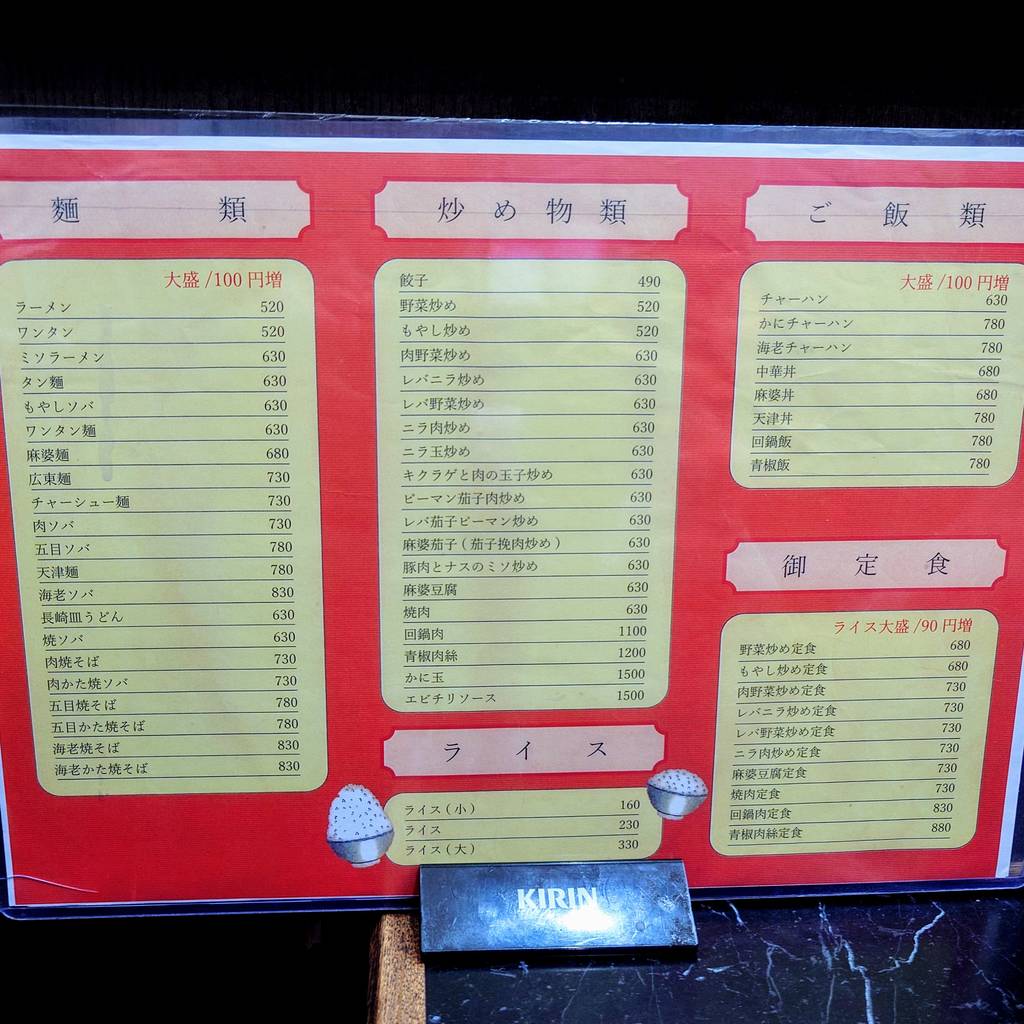 麺類
大盛/100円増
ラーメン 520
ワンタン 520
ミソラーメン 630
タン麺 630
もやしソバ 630
ワンタン麺 630
麻婆麺 680
広東麺 730
チャーシュー麺 730
肉ソバ 730
五目ソバ 780
天津麺 780
海老ソバ 830
長崎皿うどん 630
焼ソバ 630
肉焼そば 730
肉かた焼ソバ 730
五目焼そば 780
五目かた焼そば 780
海老焼そば 830
海老かた焼そば 830
炒め物類
餃子 490
野菜炒め 520
もやし炒め 520
肉野菜炒め 630
レバニラ炒め 630
レバ野菜炒め 630
ニラ肉炒め 630
ニラ玉炒め 630
キクラゲと肉の玉子炒め 630
ピーマン茄子肉炒め 630
レバ茄子ピーマン炒め 630
麻婆茄子(茄子挽肉炒め) 630
豚肉とナスのミソ炒め 630
麻婆豆腐 630
焼肉 630
回鍋肉 1100
青椒肉絲 1200
かに玉 1500
エビチリソース 1500
ライス
ライス(小) 160
ライス 230
ライス(大) 330
ご飯類
大盛/100円増
チャーハン 630
かにチャーハン 780
海老チャーハン 780
中華丼 680
麻婆丼 680
天津丼 780
回鍋飯 780
青椒飯 780
御定食
ライス大盛/90円増
野菜炒め定食 680
もやし炒め定食 680
肉野菜炒め定食 730
レバニラ炒め定食 730
レバ野菜炒め定食 730
ニラ肉炒め定食 730
麻婆豆腐定食 730
焼肉定食 730
回鍋肉定食 830
青椒肉絲定食 880
KIRIN